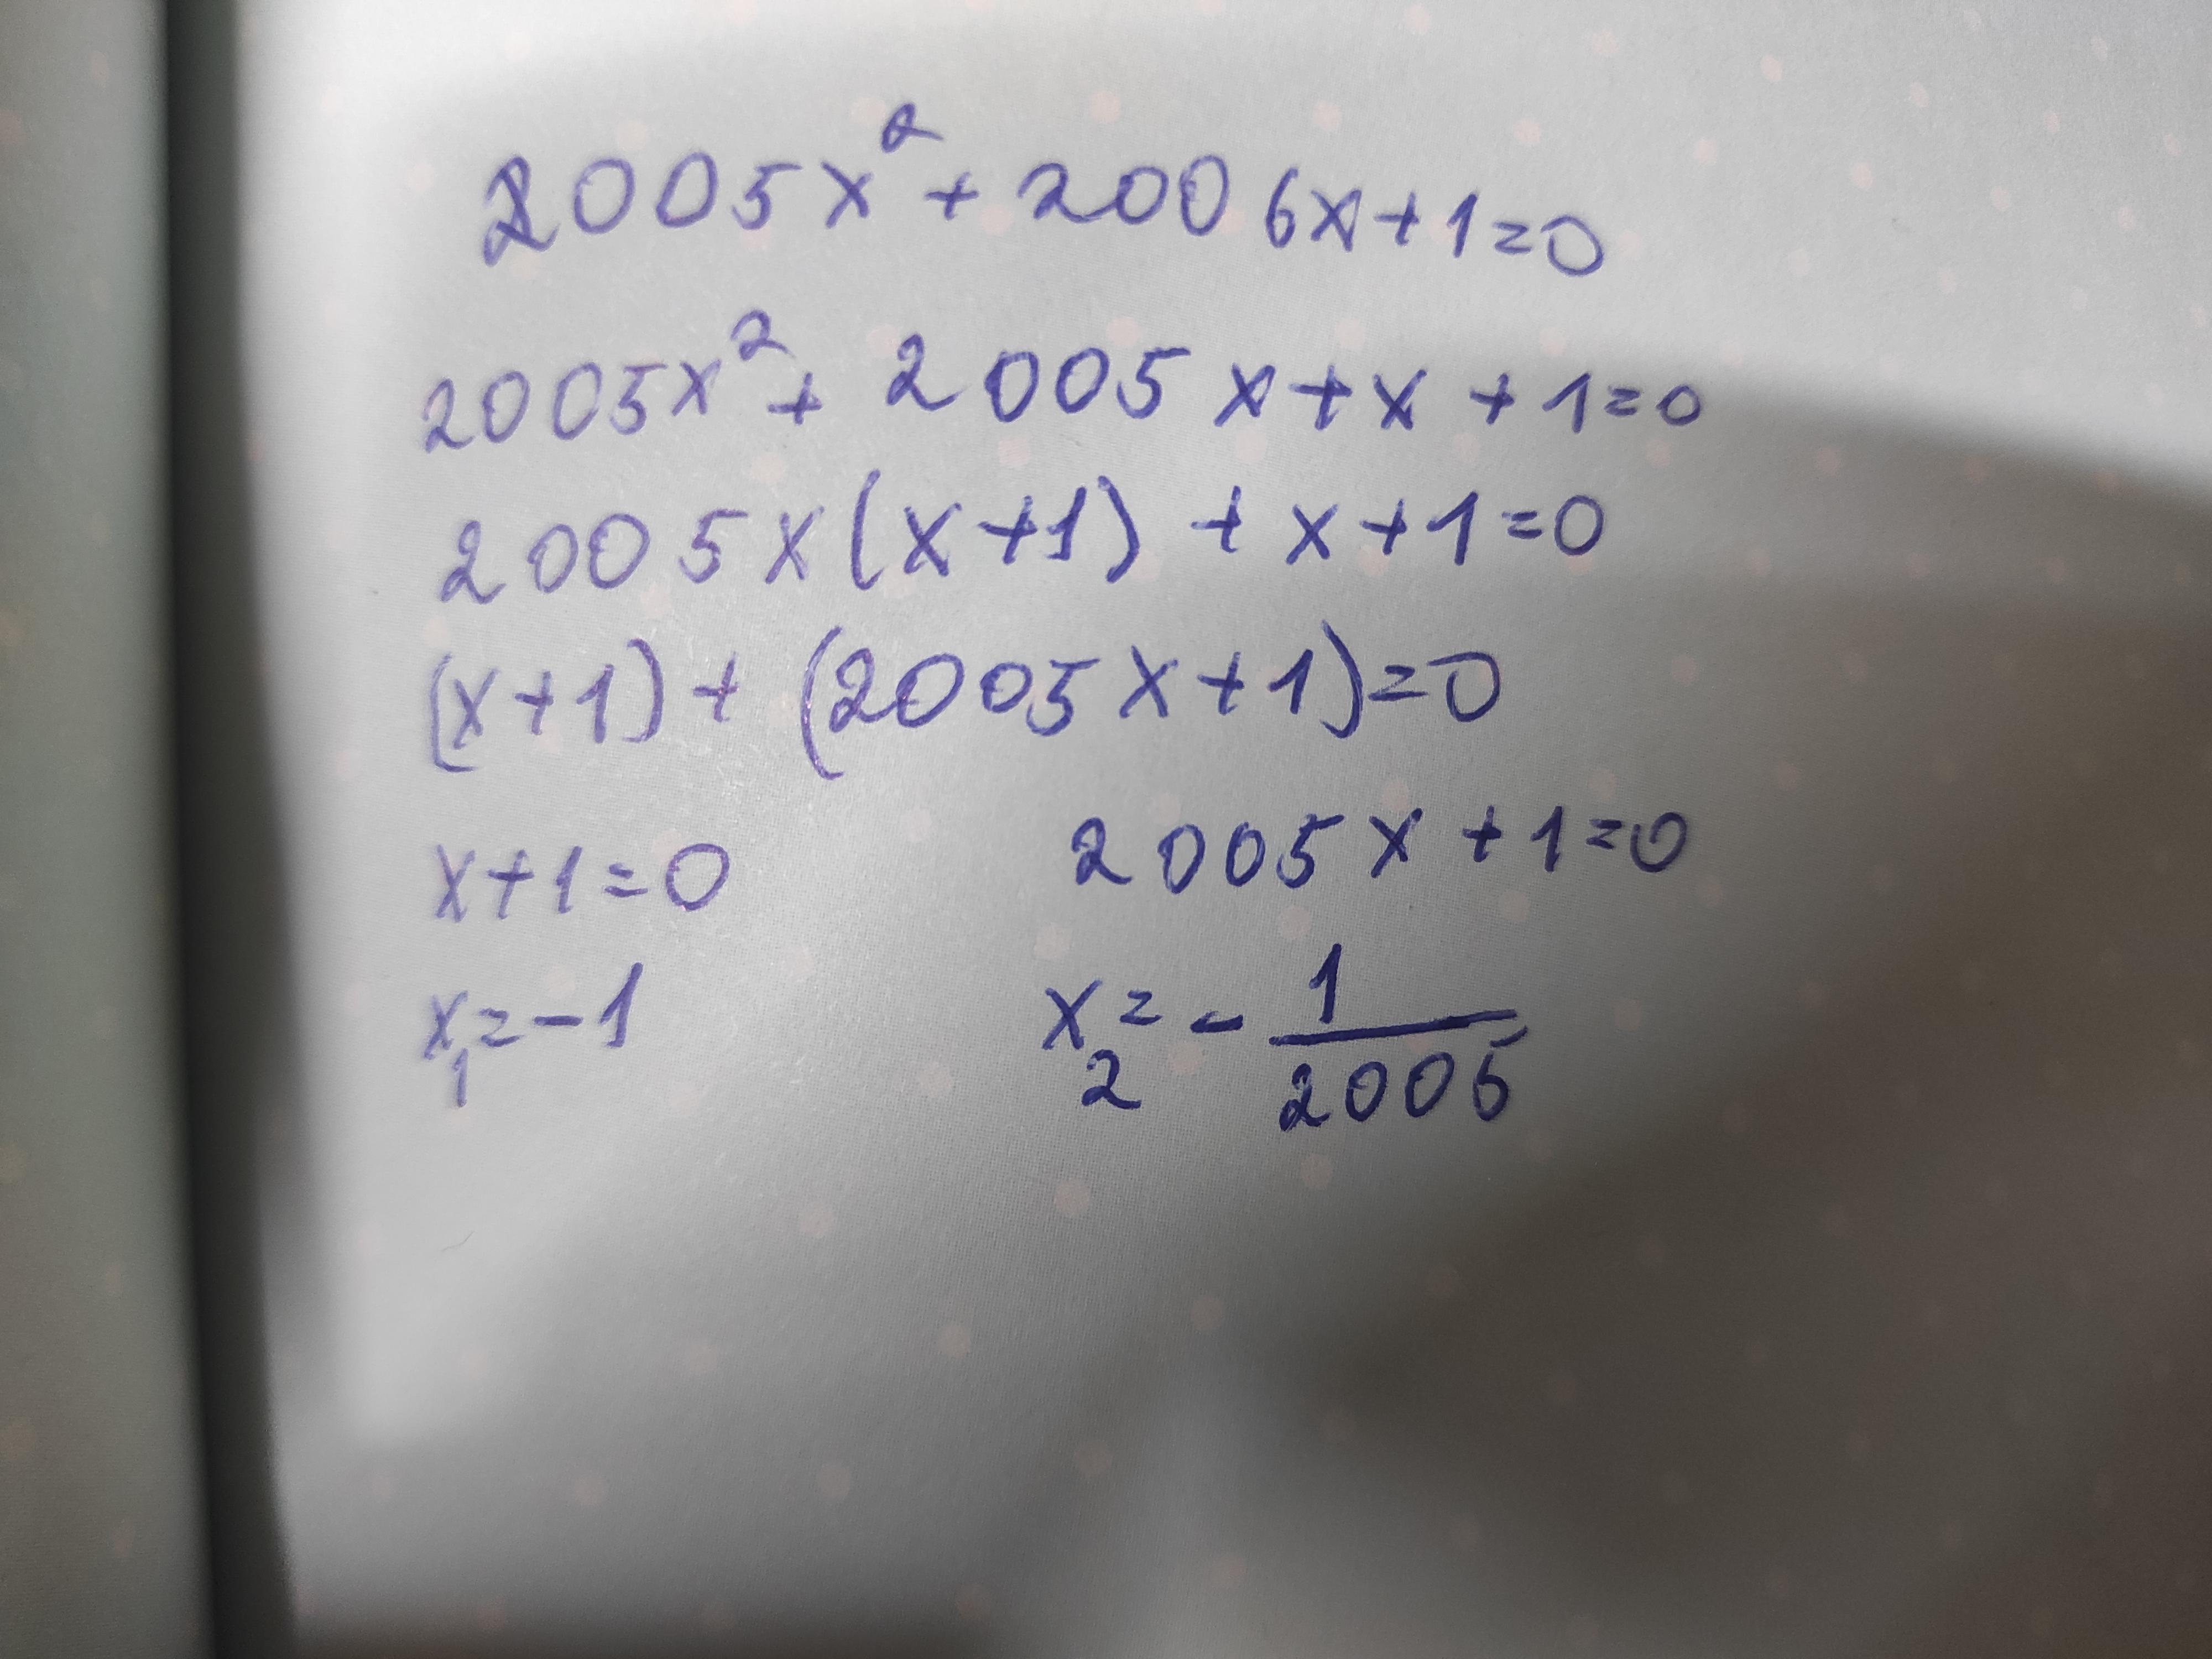 2005x² + 2006x + 1 = 0
2005x² + 2005x + x + 1 = 0
2005x(x+1) + x + 1 = 0
(x+1) + (2005x+1) = 0
x + 1 = 0 2005x + 1 = 0
x₁ = -1 x₂ = - 1/2005